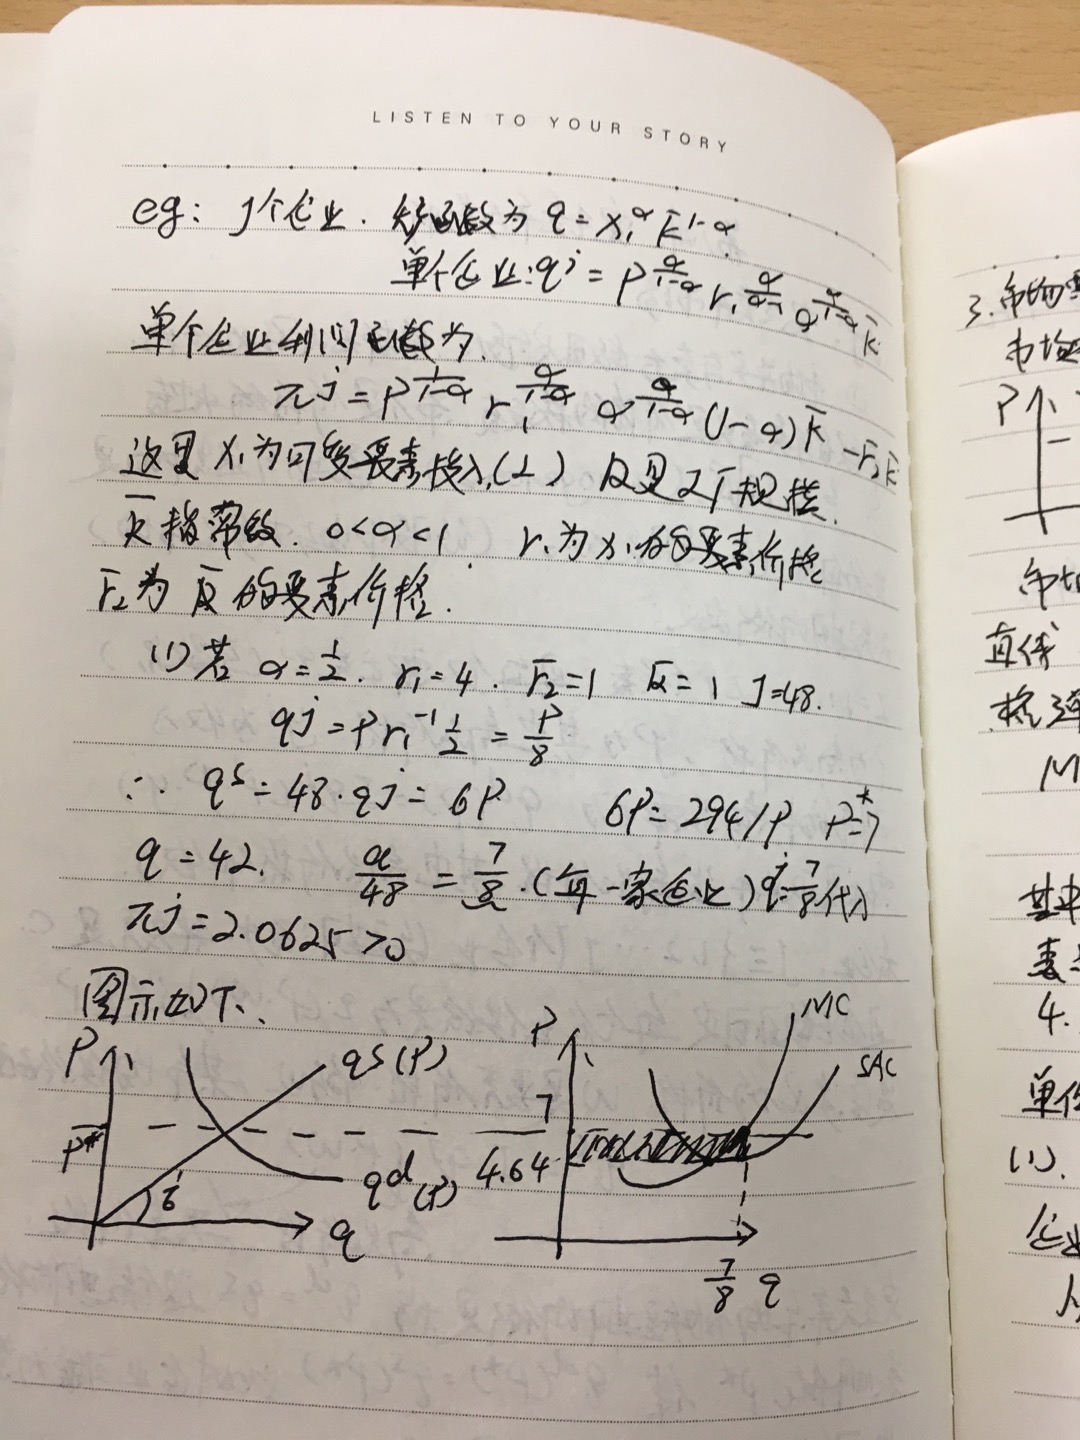 LISTEN TO YOUR STORY
eg: J个企业. 生产函数为 q = x₁^α k̄^(1-α)
单个企业: qʲ = p^(α/(1-α)) r₁^(α/(α-1)) α^(α/(1-α)) k̄
单个企业利润函数为.
πʲ = p^(1/(1-α)) r₁^(α/(α-1)) α^(α/(1-α)) (1-α) k̄ - r̄₂k̄
这里 x₁为可变要素投入(L) k̄是工厂规模.
k̄指常数. 0<α<1 r₁为x₁的要素价格
r̄₂为 k̄的要素价格.
(1) 若 α = 1/2. r₁ = 4. r̄₂ = 1 k̄ = 1 J = 48.
qʲ = P r₁⁻¹ 1/2 = P/8
∴ qˢ = 48·qʲ = 6P 6P = 294/P P* = 7
q = 42. q/48 = 7/8. (每一家企业) qʲ = 7/8 代入
πʲ = 2.0625 > 0
图示如下、
P qˢ(P) P* qᵈ(P) 6 q
P MC SAC 7 4.64 7/8 q
3. 市场
市场
P
市场
直线
格弹
M
其中
素
4.
单位
(1).
企业